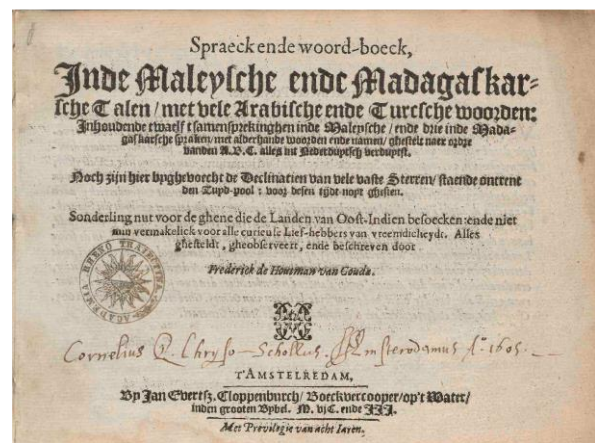 Spraeck ende woord-boeck,
Inde Maleysche ende Madagaskar-
sche Talen/ met vele Arabische ende Turcsche woorden:
Inhoudende twaelf tsamensprekinghen inde Maleysche/ ende drie inde Mada-
gaskarsche spraken/ met alderhande woorden ende namen/ ghestelt naer ordre
vanden A.B.C. alles int Nederduytsch verduytst.
Noch zijn hier byghevoecht de Declinatien van vele vaste Sterren/ staende ontrent
den Zuyd-pool: voor desen tijdt noyt ghesien.
Sonderling nut voor de ghene die de Landen van Oost-Indien besoecken: ende niet
min vermakelick voor alle curieuse Lief-hebbers van vreemdicheydt. Alles
ghesteldt, gheobserveert, ende beschreven door
Frederick de Houtman van Gouda.
ACADEMIA RHENO TRAIECTINA
Cornelius Chryso-Schollus. Amsterodamus Aº 1605.
T'AMSTELREDAM,
By Jan Evertsz. Cloppenburch/ Boeckvercooper/ op't Water/
inden grooten Bybel. M. vjC. ende III.
Met Previlegie van acht Iaren.